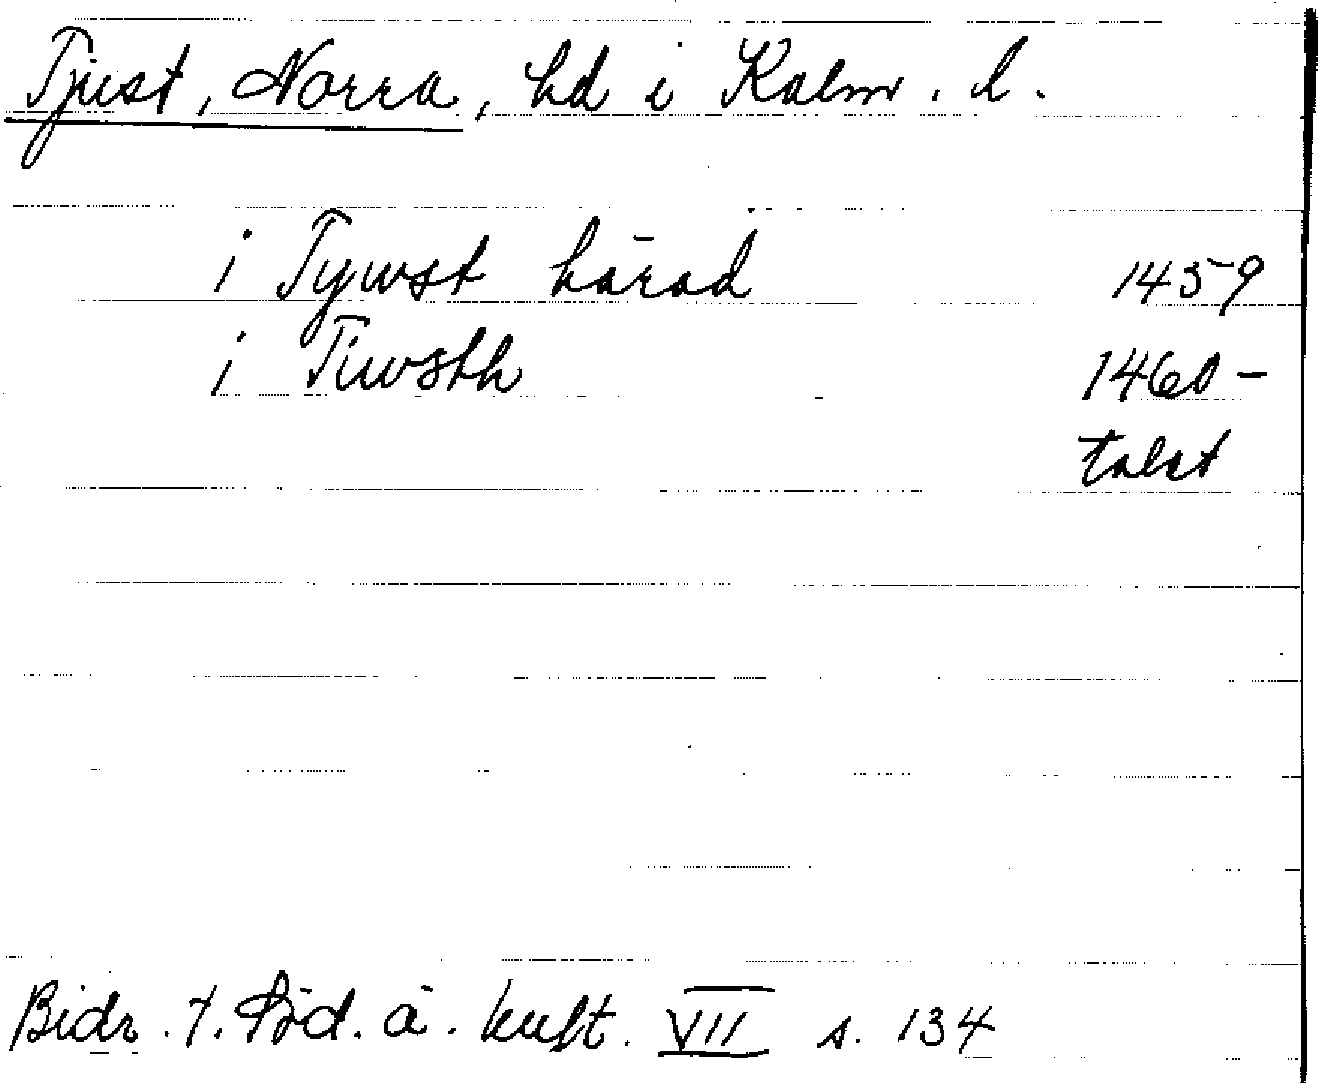 Tjust, Norra, hd i Kalm. l.
i Tywst härad 1459
i Tiwsth 1460-
talet
Bidr. t. Söd. ä. kult. VII s. 134